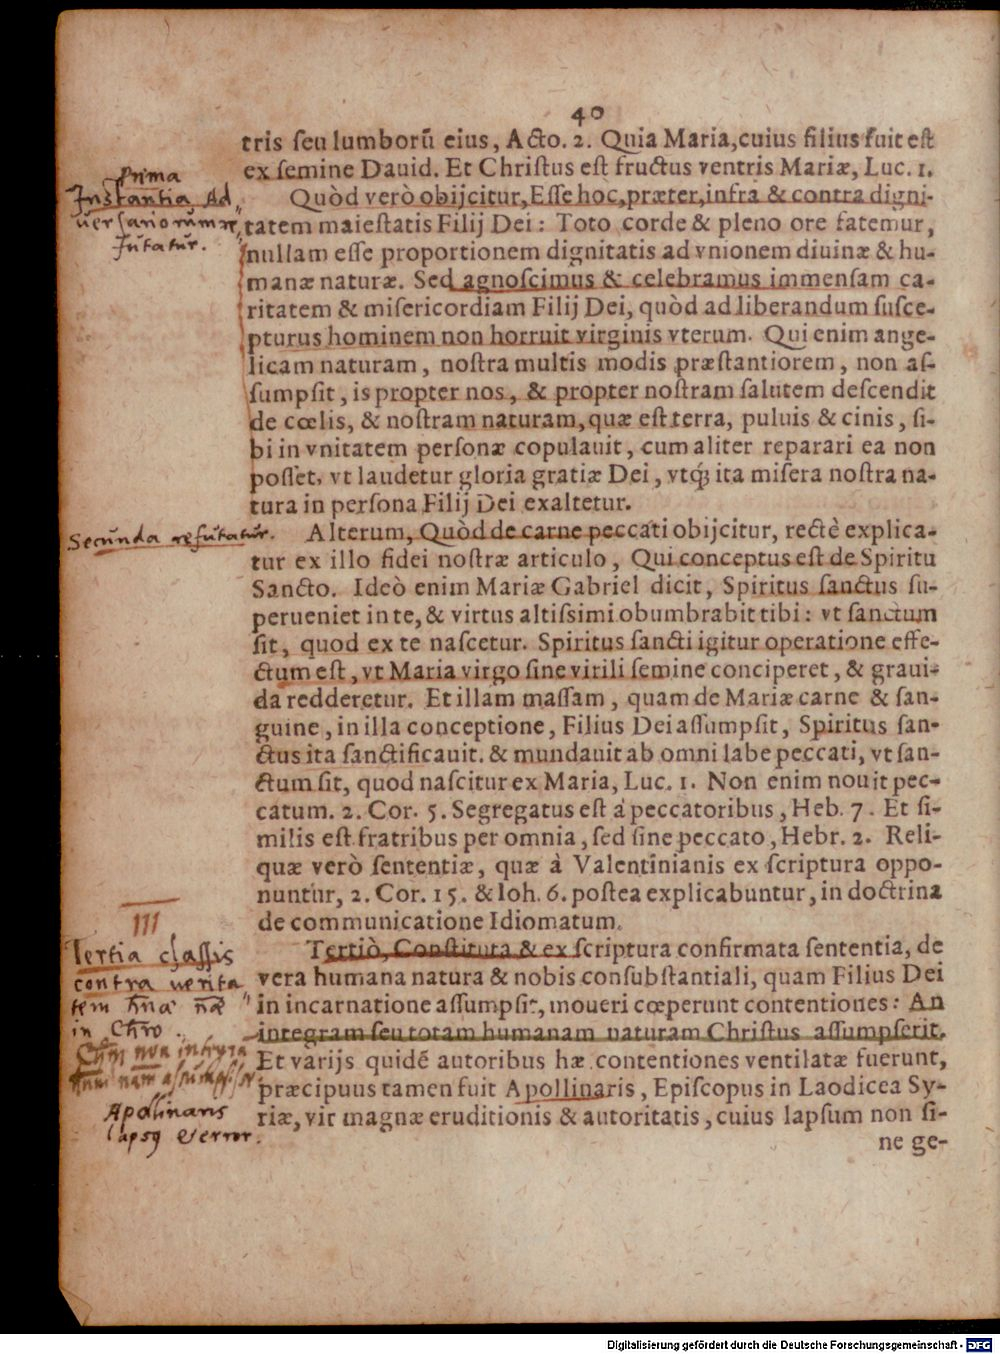 40
tris seu lumborũ eius, Acto. 2. Quia Maria, cuius filius fuit est
ex semine Dauid. Et Christus est fructus ventris Mariæ, Luc. 1.
Prima
Instantia Ad
uersariorum re
futatur.
Quòd verò obijcitur, Esse hoc, præter, infra & contra digni-
tatem maiestatis Filij Dei: Toto corde & pleno ore fatemur,
nullam esse proportionem dignitatis ad vnionem diuinæ & hu-
manæ naturæ. Sed agnoscimus & celebramus immensam ca-
ritatem & misericordiam Filij Dei, quòd ad liberandum susce-
pturus hominem non horruit virginis vterum. Qui enim ange-
licam naturam, nostra multis modis præstantiorem, non as-
sumpsit, is propter nos, & propter nostram salutem descendit
de cœlis, & nostram naturam, quæ est terra, puluis & cinis, si-
bi in vnitatem personæ copulauit, cum aliter reparari ea non
posset, vt laudetur gloria gratiæ Dei, vtq́; ita misera nostra na-
tura in persona Filij Dei exaltetur.
Secunda refutatur.
Alterum, Quòd de carne peccati obijcitur, rectè explica-
tur ex illo fidei nostræ articulo, Qui conceptus est de Spiritu
Sancto. Ideò enim Mariæ Gabriel dicit, Spiritus sanctus su-
perueniet in te, & virtus altissimi obumbrabit tibi: vt sanctum
sit, quod ex te nascetur. Spiritus sancti igitur operatione effe-
ctum est, vt Maria virgo sine virili semine conciperet, & graui-
da redderetur. Et illam massam, quam de Mariæ carne & san-
guine, in illa conceptione, Filius Dei assumpsit, Spiritus san-
ctus ita sanctificauit. & mundauit ab omni labe peccati, vt san-
ctum sit, quod nascitur ex Maria, Luc. 1. Non enim nouit pec-
catum. 2. Cor. 5. Segregatus est à peccatoribus, Heb. 7. Et si-
milis est fratribus per omnia, sed sine peccato, Hebr. 2. Reli-
quæ verò sententiæ, quæ à Valentinianis ex scriptura oppo-
nuntur, 2. Cor. 15. & Ioh. 6. postea explicabuntur, in doctrina
de communicatione Idiomatum.
III
Tertia classis
contra verita
tem hñã nãe
in Chro.
Apollinaris
lapsq & error.
Tertiò, Constituta & ex scriptura confirmata sententia, de
vera humana natura & nobis consubstantiali, quam Filius Dei
in incarnatione assumpsit, moueri cœperunt contentiones: An
integram seu totam humanam naturam Christus assumpserit.
Et varijs quidē autoribus hæ contentiones ventilatæ fuerunt,
præcipuus tamen fuit Apollinaris, Episcopus in Laodicea Sy-
riæ, vir magnæ eruditionis & autoritatis, cuius lapsum non si-
ne ge-
Digitalisierung gefördert durch die Deutsche Forschungsgemeinschaft - DFG